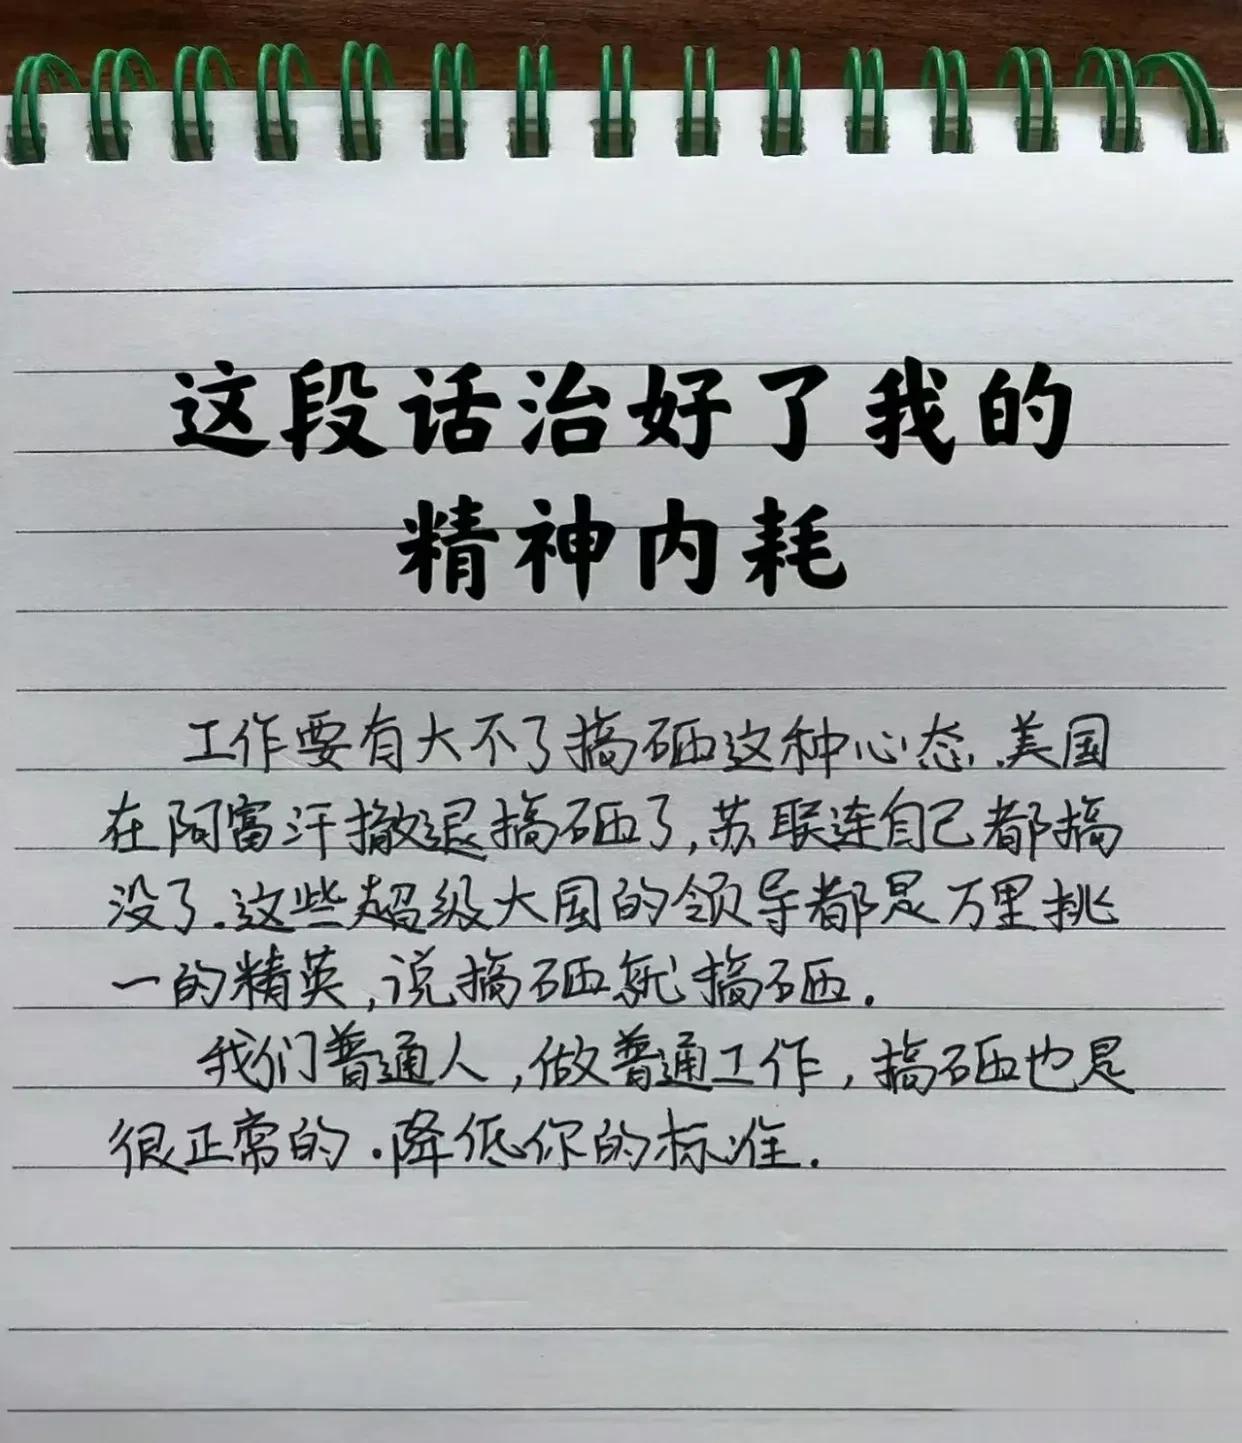 这段话治好了我的
精神内耗
工作要有大不了搞砸这种心态,美国
在阿富汗撤退搞砸了,苏联连自己都搞
没了.这些超级大国的领导都是万里挑
一的精英,说搞砸就搞砸.
我们普通人,做普通工作,搞砸也是
很正常的.降低你的标准.